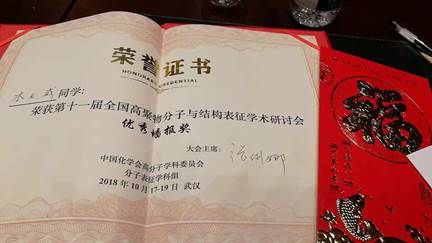 荣誉证书
HONORARY CREDENTIAL
同学:
荣获第十一届全国高聚物分子与结构表征学术研讨会
优秀墙报奖
大会主席:
中国化学会高分子学科委员会
分子表征学科组
2018年10月17-19日 武汉
福